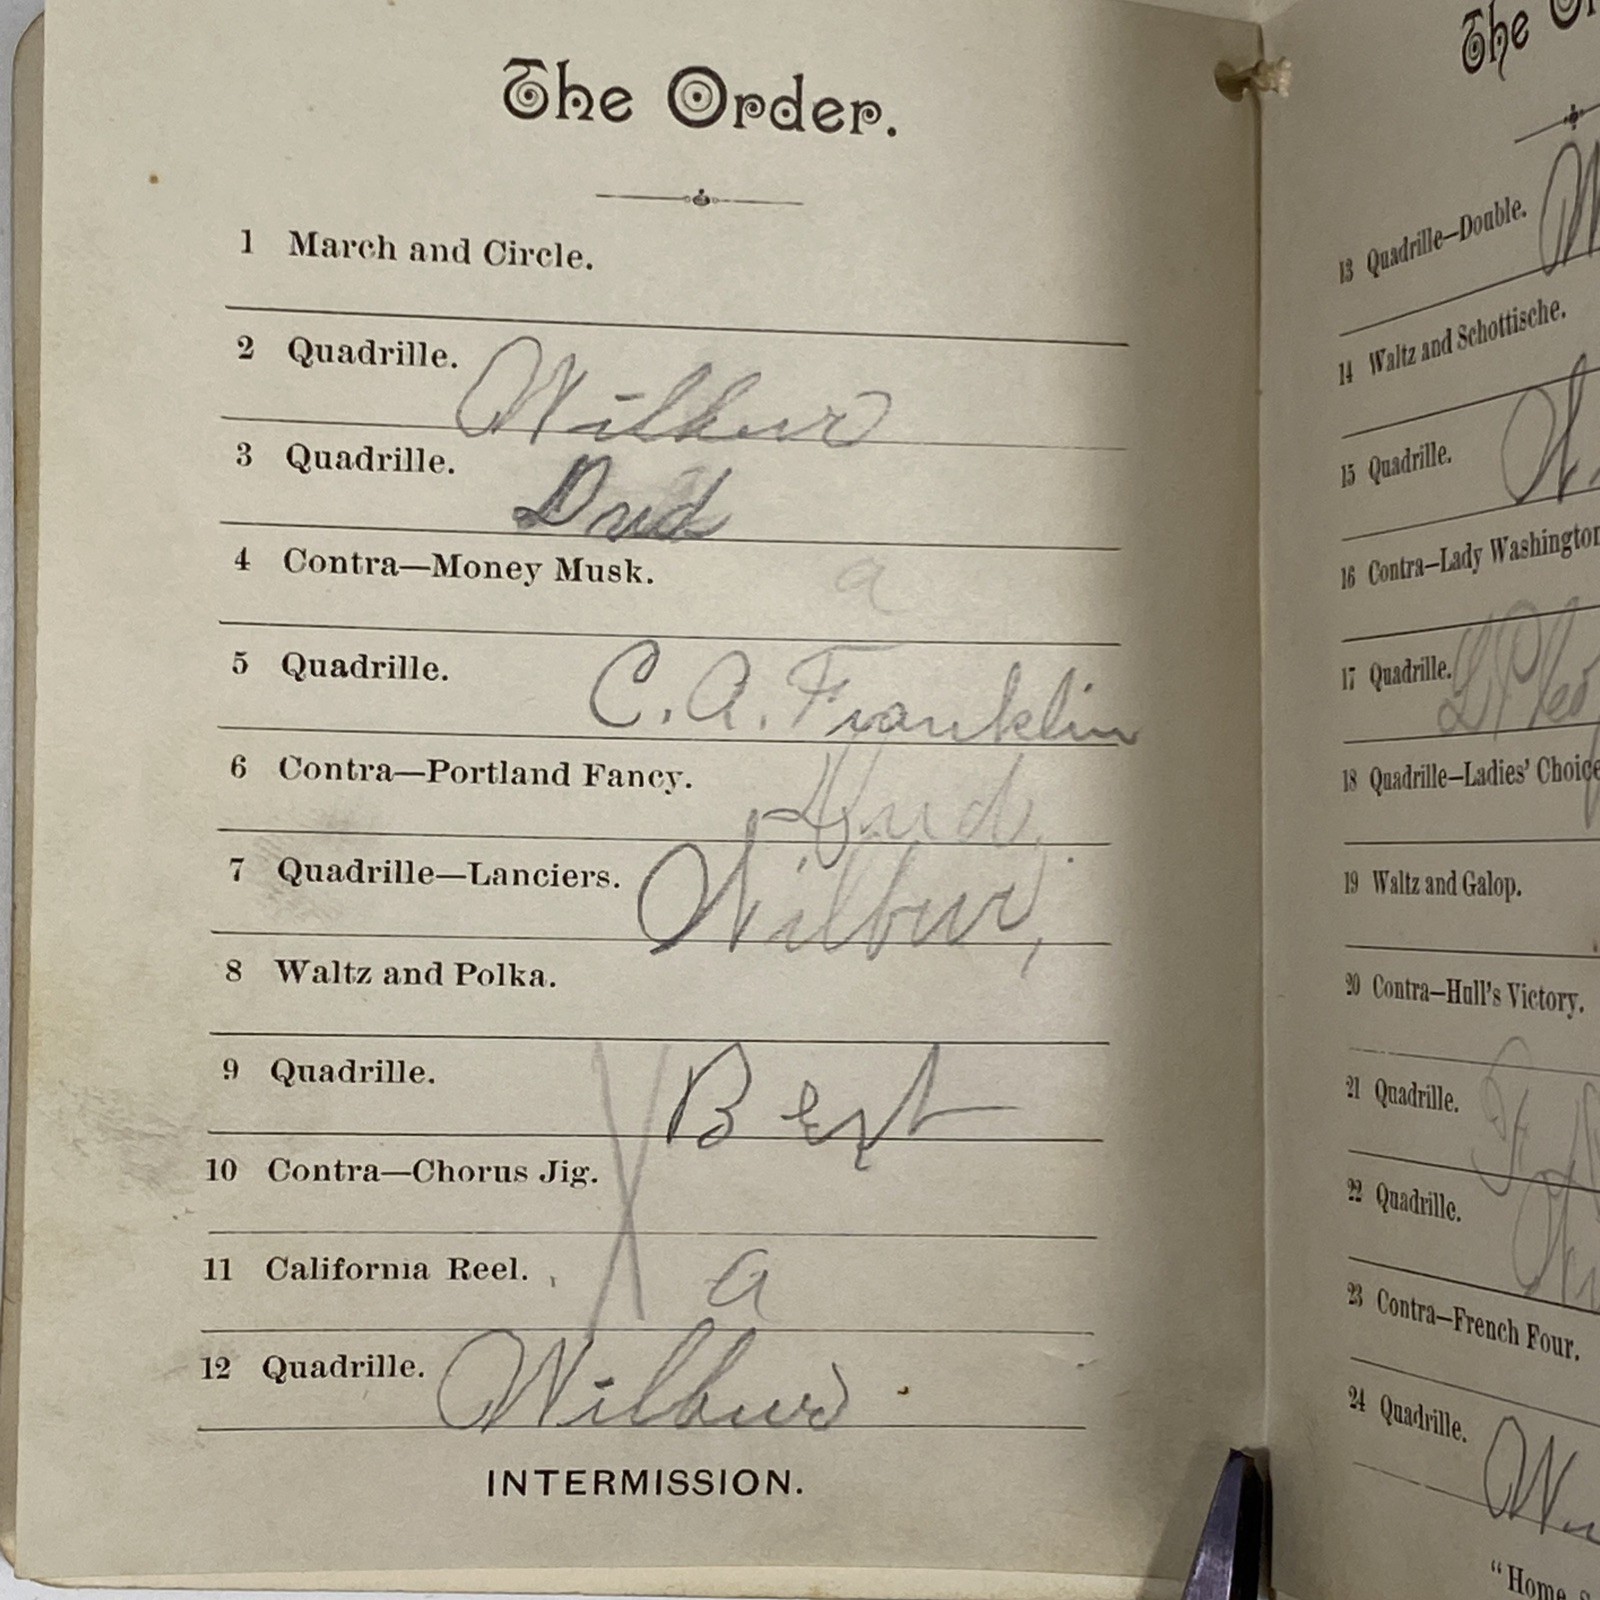 The Order.
1 March and Circle.
2 Quadrille. Wilbur
3 Quadrille. Dud
4 Contra—Money Musk. a
5 Quadrille. C. A. Franklin
6 Contra—Portland Fancy. Dud,
7 Quadrille—Lanciers. Wilbur,
8 Waltz and Polka.
9 Quadrille. Bert
10 Contra—Chorus Jig.
11 California Reel. a
12 Quadrille. Wilbur
INTERMISSION.
The Or
13 Quadrille—Double. W
14 Waltz and Schottische.
15 Quadrille. W
16 Contra—Lady Washington
17 Quadrille.
18 Quadrille—Ladies' Choice
19 Waltz and Galop.
20 Contra—Hull's Victory.
21 Quadrille.
22 Quadrille. Wi
23 Contra—French Four.
24 Quadrille. Wi
"Home S